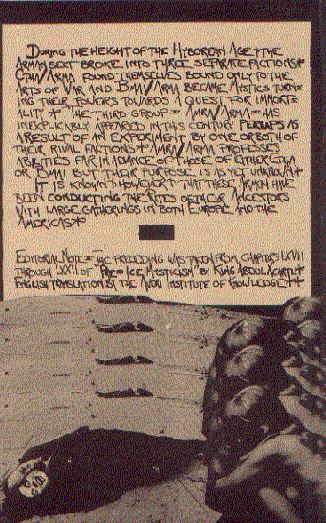 DURING THE HEIGHT OF THE HYBOREAN AGE THE
ARMA SECT BROKE INTO THREE SEPARATE FACTIONS
ARMA FOUND THEMSELVES BOUND ONLY TO THE
ARTS OF WAR AND ARMA BECAME MYSTICS TURN-
ING THEIR POWERS TOWARDS A QUEST FOR IMMORT-
ALITY THE THIRD GROUP ARMA HAS
INEXPLICABLY APPEARED IN THIS CENTURY PERHAPS AS
A RESULT OF AN EXPERIMENT OF ONE OR BOTH OF
THEIR RIVAL FACTIONS ARMA PROFESSES
ABILITIES FAR IN ADVANCE OF THOSE OF EITHER
OR BUT THEIR PURPOSE IS AS YET UNKNOWN
IT IS KNOWN HOWEVER THAT THESE HAVE
BEEN CONDUCTING THE RITES OF THEIR ANCESTORS
WITH LARGE GATHERINGS IN BOTH EUROPE AND THE
AMERICAS
EDITORIAL NOTE THE PRECEDING WAS TAKEN FROM CHAPTERS LXVII
THROUGH LXXII OF PRE-ICE MYSTICISM BY KING ABDUL
ENGLISH TRANSLATION BY THE INSTITUTE OF KNOWLEDGE